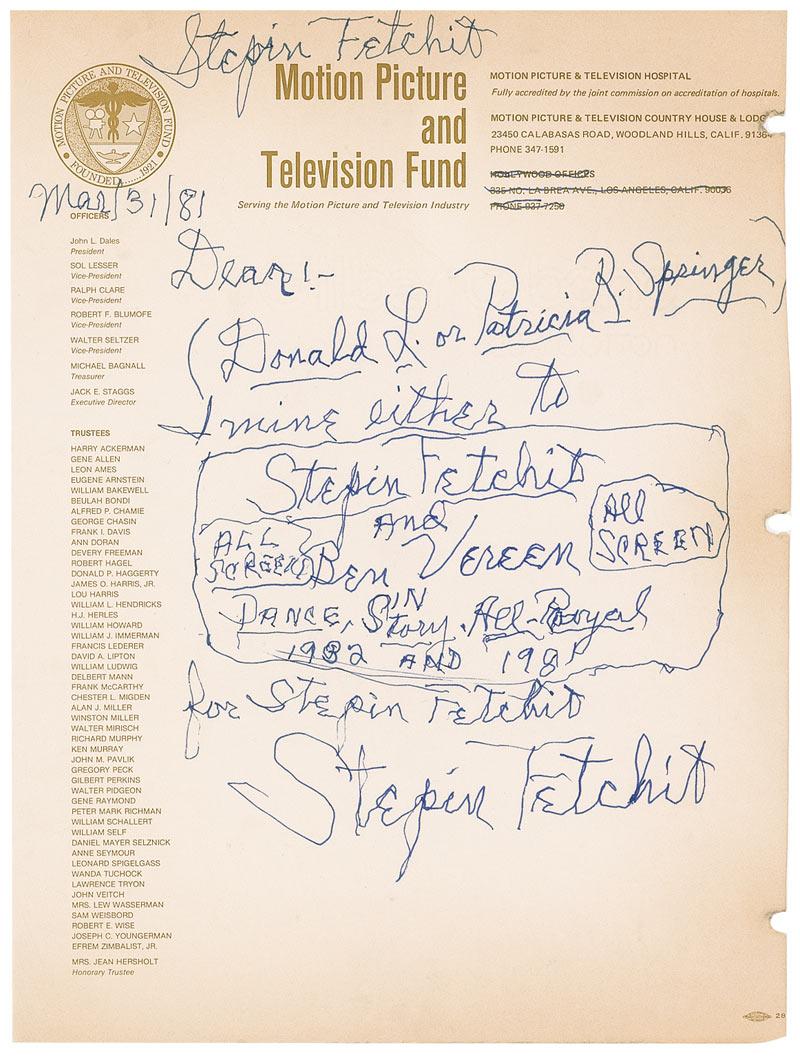 Stepin Fetchit
MOTION PICTURE AND TELEVISION FUND
FOUNDED 1921
Motion Picture
and
Television Fund
Serving the Motion Picture and Television Industry
MOTION PICTURE & TELEVISION HOSPITAL
Fully accredited by the joint commission on accreditation of hospitals.
MOTION PICTURE & TELEVISION COUNTRY HOUSE & LODG
23450 CALABASAS ROAD, WOODLAND HILLS, CALIF. 91364
PHONE 347-1591
HOLLYWOOD OFFICES
835 NO. LA BREA AVE., LOS ANGELES, CALIF. 90036
PHONE 937-7250
Mar/31/81
OFFICERS
John L. Dales
President
SOL LESSER
Vice-President
RALPH CLARE
Vice-President
ROBERT F. BLUMOFE
Vice-President
WALTER SELTZER
Vice-President
MICHAEL BAGNALL
Treasurer
JACK E. STAGGS
Executive Director
TRUSTEES
HARRY ACKERMAN
GENE ALLEN
LEON AMES
EUGENE ARNSTEIN
WILLIAM BAKEWELL
BEULAH BONDI
ALFRED P. CHAMIE
GEORGE CHASIN
FRANK I. DAVIS
ANN DORAN
DEVERY FREEMAN
ROBERT HAGEL
DONALD P. HAGGERTY
JAMES O. HARRIS, JR.
LOU HARRIS
WILLIAM L. HENDRICKS
H.J. HERLES
WILLIAM HOWARD
WILLIAM J. IMMERMAN
FRANCIS LEDERER
DAVID A. LIPTON
WILLIAM LUDWIG
DELBERT MANN
FRANK McCARTHY
CHESTER L. MIGDEN
ALAN J. MILLER
WINSTON MILLER
WALTER MIRISCH
RICHARD MURPHY
KEN MURRAY
JOHN M. PAVLIK
GREGORY PECK
GILBERT PERKINS
WALTER PIDGEON
GENE RAYMOND
PETER MARK RICHMAN
WILLIAM SCHALLERT
WILLIAM SELF
DANIEL MAYER SELZNICK
ANNE SEYMOUR
LEONARD SPIGELGASS
WANDA TUCHOCK
LAWRENCE TRYON
JOHN VEITCH
MRS. LEW WASSERMAN
SAM WEISBORD
ROBERT E. WISE
JOSEPH C. YOUNGERMAN
EFREM ZIMBALIST, JR.
MRS. JEAN HERSHOLT
Honorary Trustee
Dear!-
(Donald L. or Patricia R. Springer)
I mine either to
Stepin Fetchit
And
ALL SCREEN
Ben Vereen
All SCREEN
IN
DANCE, Story. All-Royal
1982 AND 1981
for Stepin Fetchit
Stepin Fetchit
28